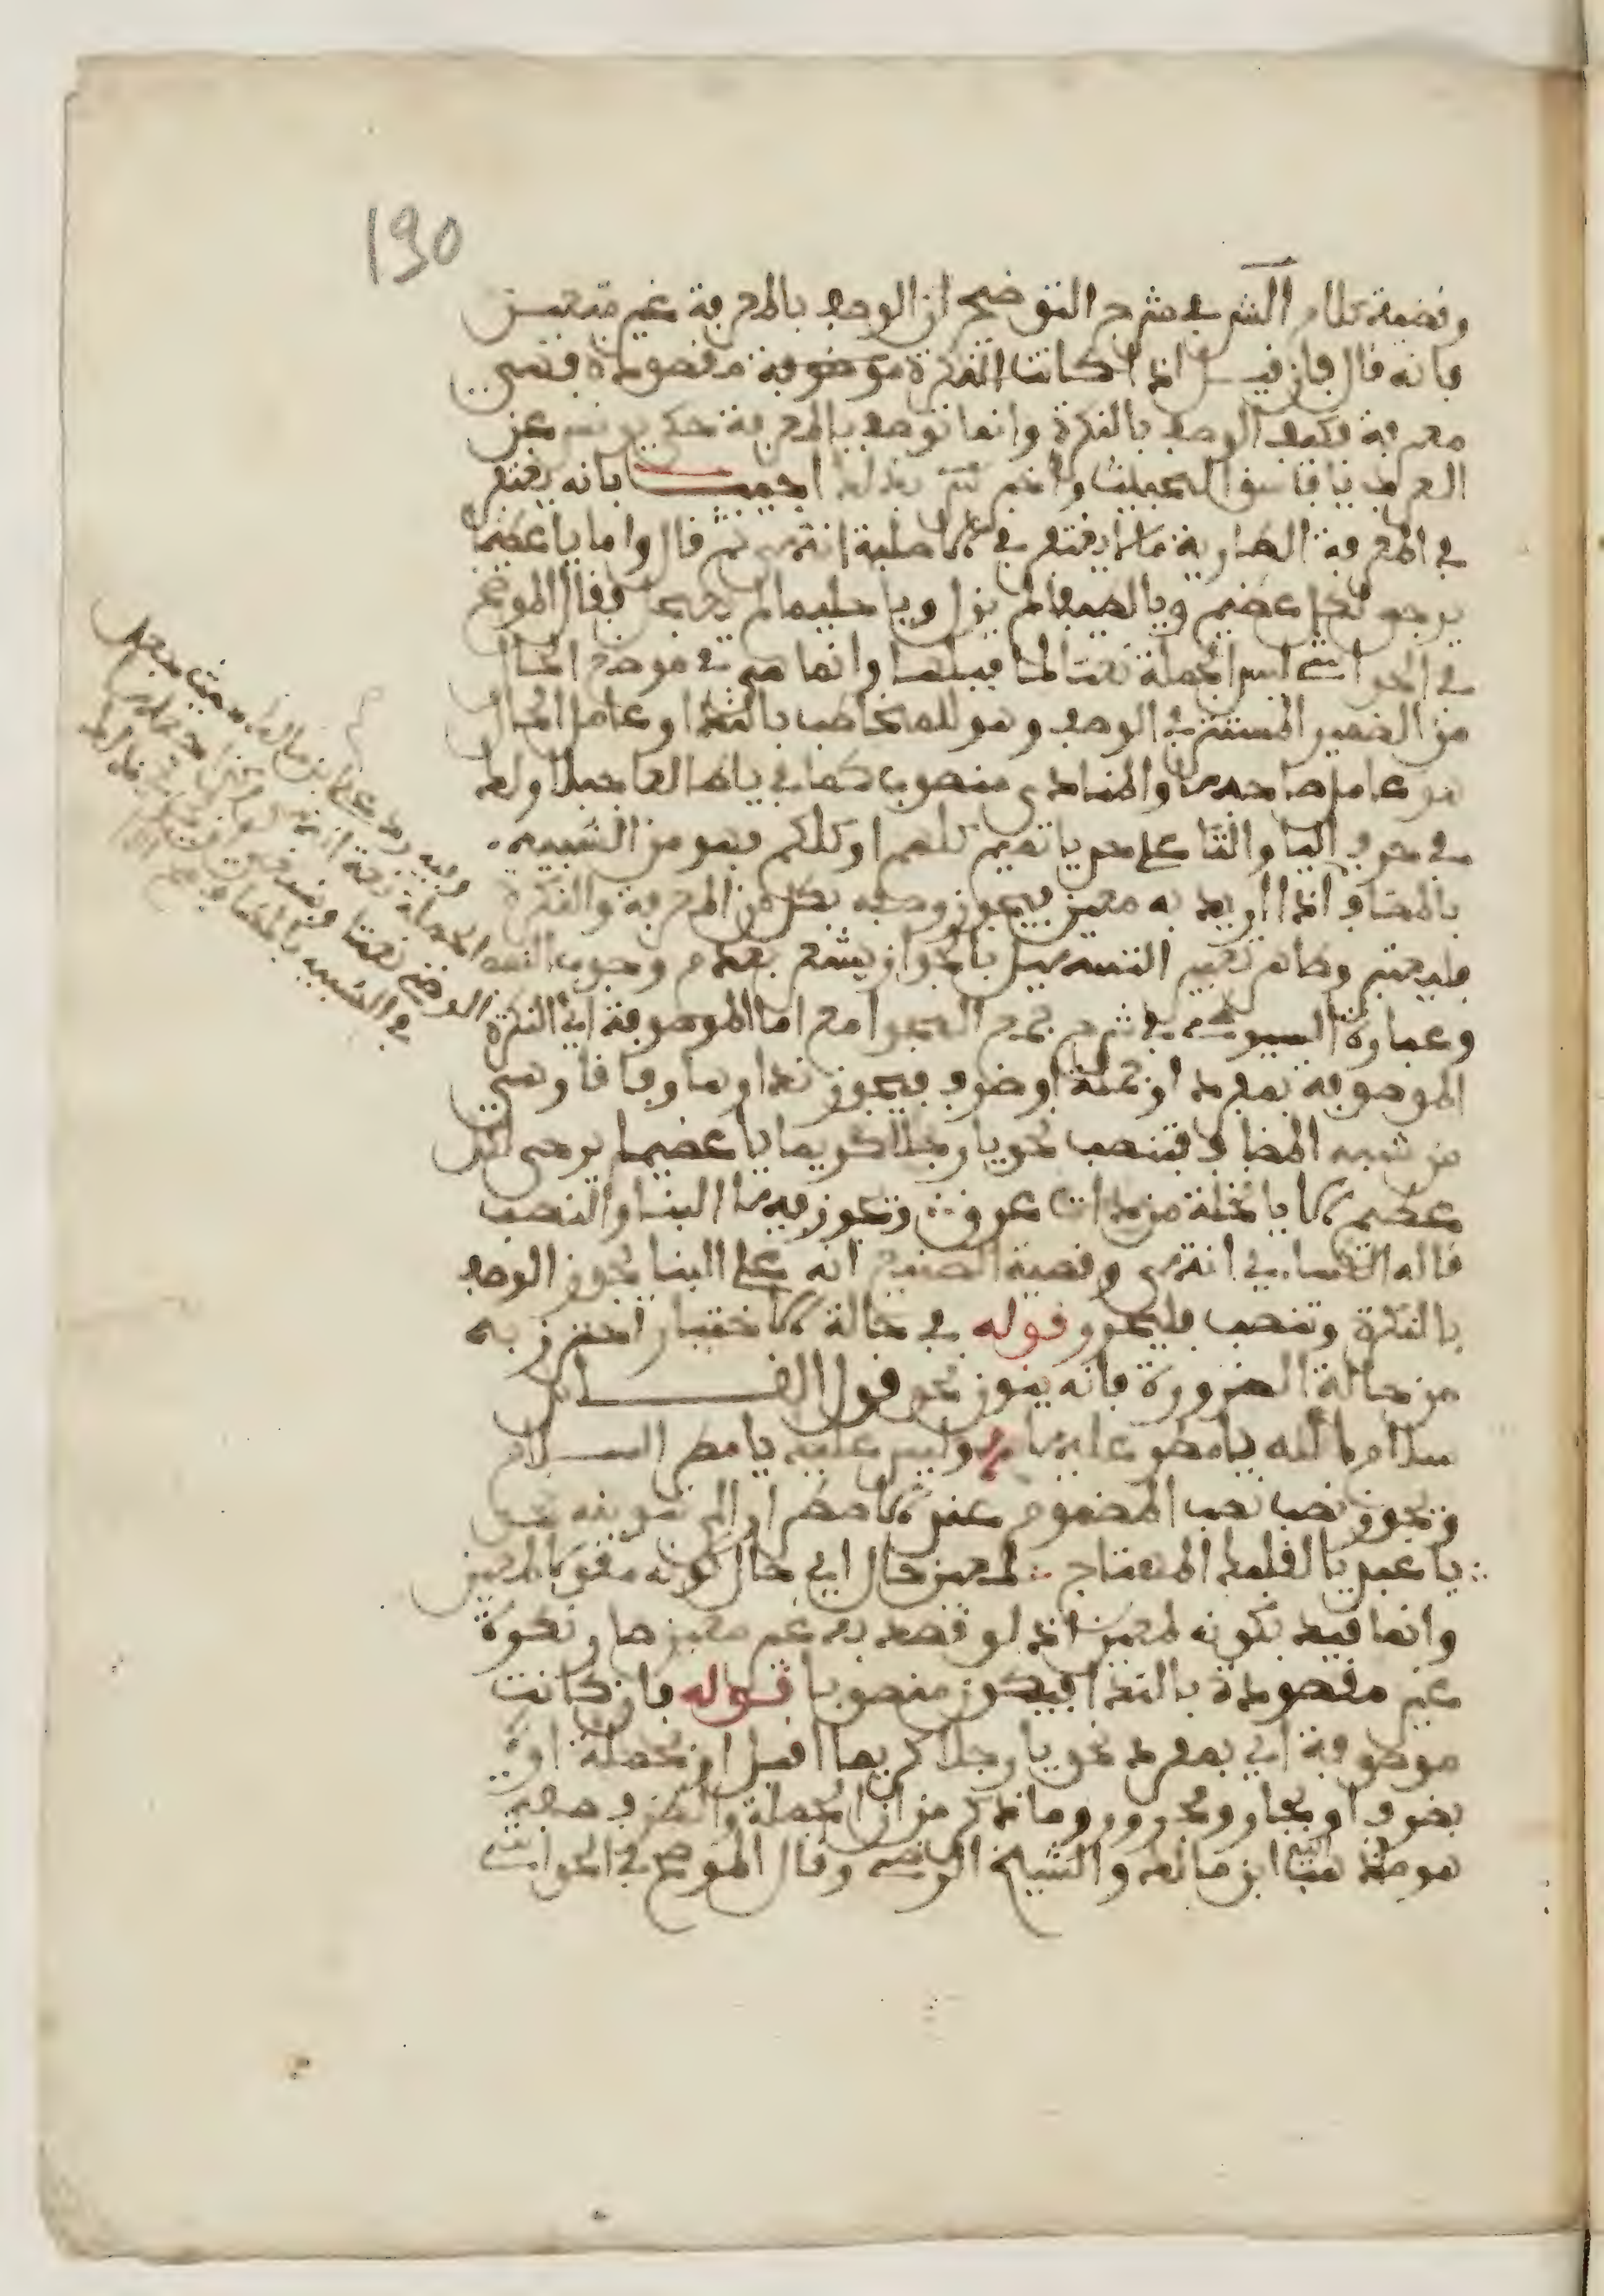 190
وقضية كلام الشر في شرح التوضيح ان الوصف بالمعرفة غير متعين
فانه قال فان قيل اذا كانت النكرة موصوفة مقصودة فهي
معرفة فكيف الوصف بالنكرة وانما توصف بالمعرفة حكى يونس عن
العرب يا فاسق الخبيث اجيب بانه يغتفر
في المعرفة الطارية ما لا يغتفر في الاصلية انتهى ثم قال واما يا عظيما
يرجى لكل عظيم ويا لطيفا لم يزل ويا حليما لا يعجل فقال الموضح
في الحواشي ليس الجملة نعتا لما قبلها وانما هي في موضع الحال
من الضمير المستتر في الوصف وهو المخاطب بالندا وعامل الحال
هو عامل صاحبها والمنادى منصوب كما في يا طالعا جبلا ولك
في حرف اليا والتا على حد يا تميم كلهم او كلكم فهو من الشبيه
بالمضاف اذا اريد به معين فيجوز وصفه بكل من المعرفة والنكرة
فليعتبر وظاهر تعبير التسهيل بالجواز يشعر بعدم وجوب النصب
وعبارة السيوطي في شرح جمع الجوامع اما الموصوفة اي النكرة
الموصوفة بمفرد او جملة او ظرف فيجوز نداوها وفاقا وهي
من شبه المضاف فتنصب نحو يا رجلا كريما يا عظيما يرجى لكل
عظيم الا يا نخلة من ذات عرق ويجوز فيها البنا والنصب
قاله الكساءي انتهى وقضية الصنيع انه على البنا يجوز الوصف
بالنكرة وتنصب فليحرر قوله في حالة الاختيار احترز به
من حالة الضرورة فانه يجوز نحو قول القائل
سلام الله يا مطر عليها وليس عليك يا مطر السلام
ويجوز نصب نصب المضموم عند الاضطرار الى تنوينه نحو
يا عديا لقلبك المهتاج لمعين حال اي حال كونه مقولا لمعين
وانما قيد بكونه لمعين اذ لو قصد به غير معين صار نكرة
غير مقصودة بالندا فيكون منصوبا قوله فان كانت
موصوفة اي بمفرد نحو يا رجلا كريما اقبل او بجملة او
بظرف او بجار ومجرور وما ذكر من ان الجملة والظرف صفة
هو ما ابن مالك والشيخ الرضي وقال الموضح في الحواشي
وفيه رد على ابن مالك حيث جعل
الجملة نعتا
في الشبيه بالمضاف